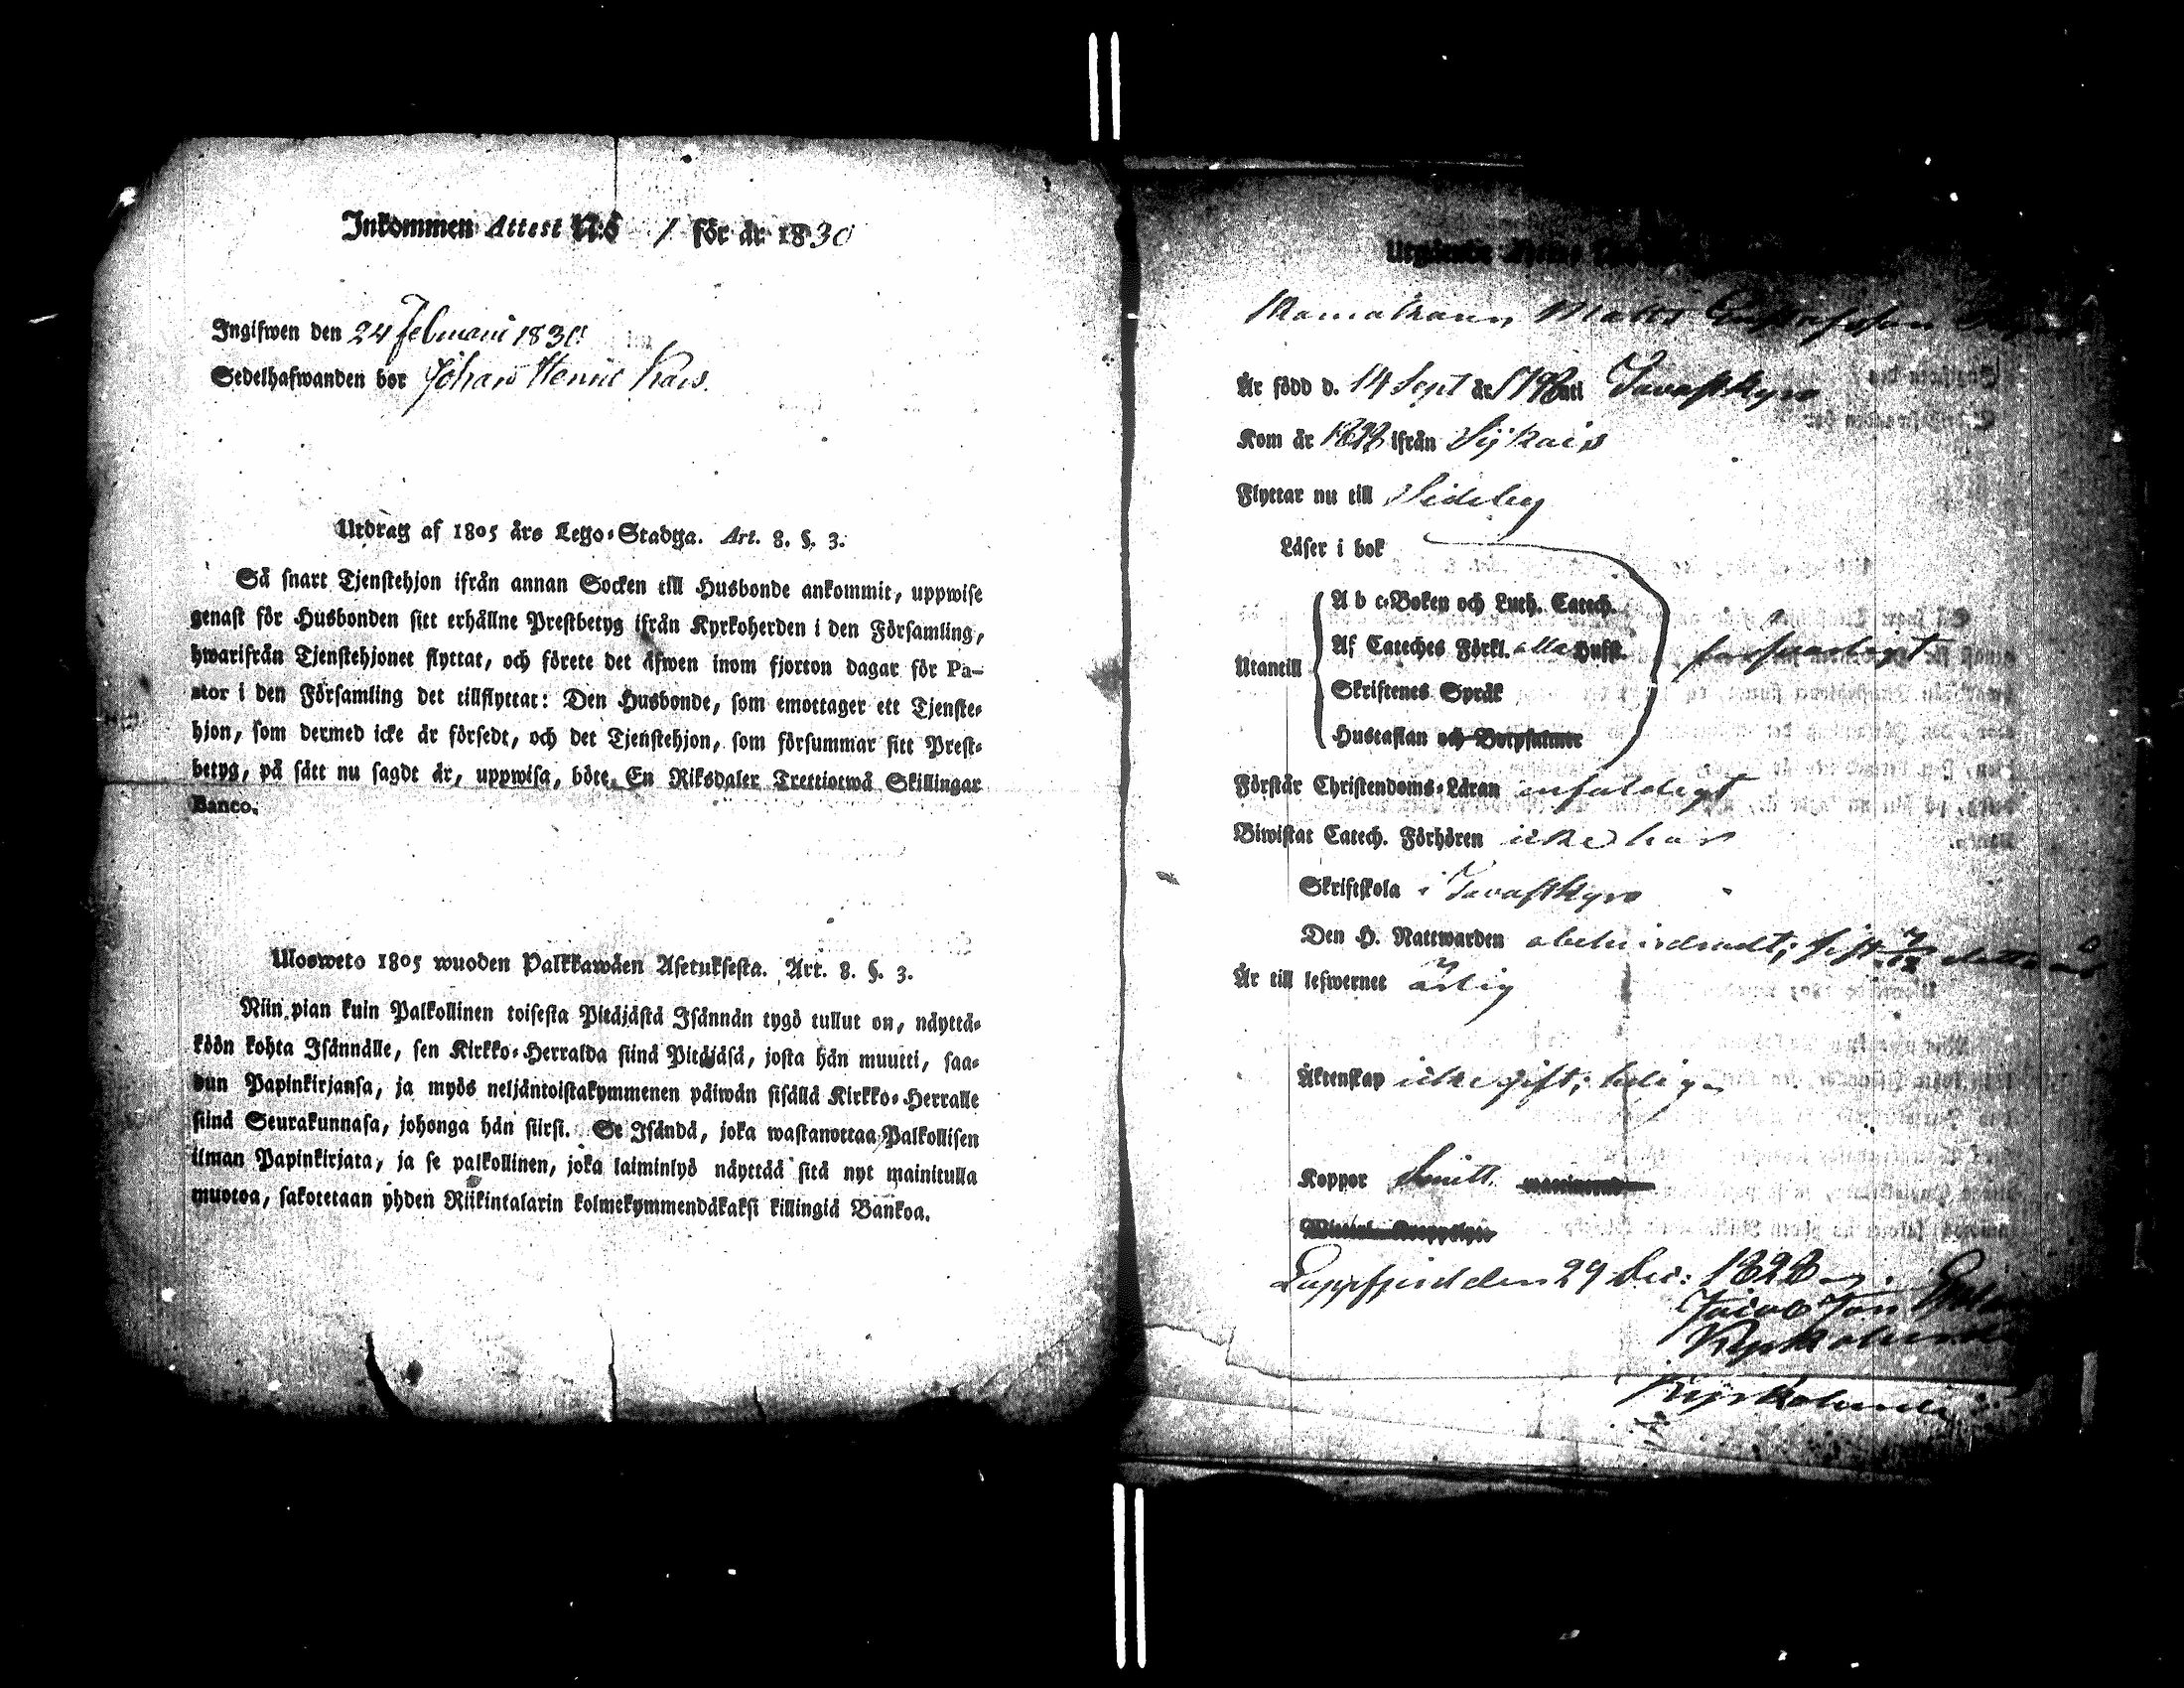 Inkommen Attest N:ö 1 för år 1830
Ingifwen den 24 Februarii 1830
Sedelhafwanden bor Johan Henric
Utdrag af 1805 års Lego-Stadga. Art. 8. §. 3.
Så snart Tjenstehjon ifrån annan Socken till Husbonde ankommit, uppwise
genast för Husbonden sitt erhållne Prestbetyg ifrån Kyrkoherden i den Församling,
hwarifrån Tjenstehjonet flyttat, och förete det äfwen inom fjorton dagar för Pa-
stor i den Församling det tillflyttat: Den Husbonde, som emottager ett Tjenste-
hjon, som dermed icke är försedt, och det Tjenstehjon, som försummar sitt Prest-
betyg, på sätt nu sagdt är, uppwisa, böte En Riksdaler Trettiotwå Skillingar
Banco.
Ulosweto 1805 wuoden Palkkawäen Asetuksesta. Art. 8. §. 3.
Niin pian kuin Palkollinen toisesta Pitäjästä Isännän tygö tullut on, näyttä-
köön kohta Isännälle, sen Kirkko-Herralda siinä Pitäjäsä, josta hän muutti, saa-
dun Papinkirjansa, ja myös neljäntoistakymmenen päiwän sisällä Kirkko-Herralle
siinä Seurakunnasa, johonga hän siirsi. Se Isändä, joka wastanottaa Palkollisen
ilman Papinkirjata, ja se palkollinen, joka laiminlyö näyttää sitä nyt mainitulla
muotoa, sakotetaan yhden Riikintalarin kolmekymmendäkaksi killingiä Bankoa.
Matts Gustafsson
Är född d. 14 Sept år i Tavastkyro
Kom år 1828 ifrån
Flyttar nu till Sideby
Läser i bok
A b c-Boken och Luth. Catech.
Utantill Af Cateches Förkl. alla Hufst. försvarligt
Skriftenes Språk
Hustaflan och Botpsalmer
Förstår Christendoms-Läran enfaldigt
Biwistat Catech. Förhören icke här
Skriftskola i Tavastkyro
Den H. Nattwarden obehindradt; sist 7/12 detta år
Är till lefwernet ärlig
Äktenskap icke gift; ledig
Koppor
Lappfjerd den 29 Dec: 1828
Jacob Jon
Kyrkoherde
Kyrkoherde